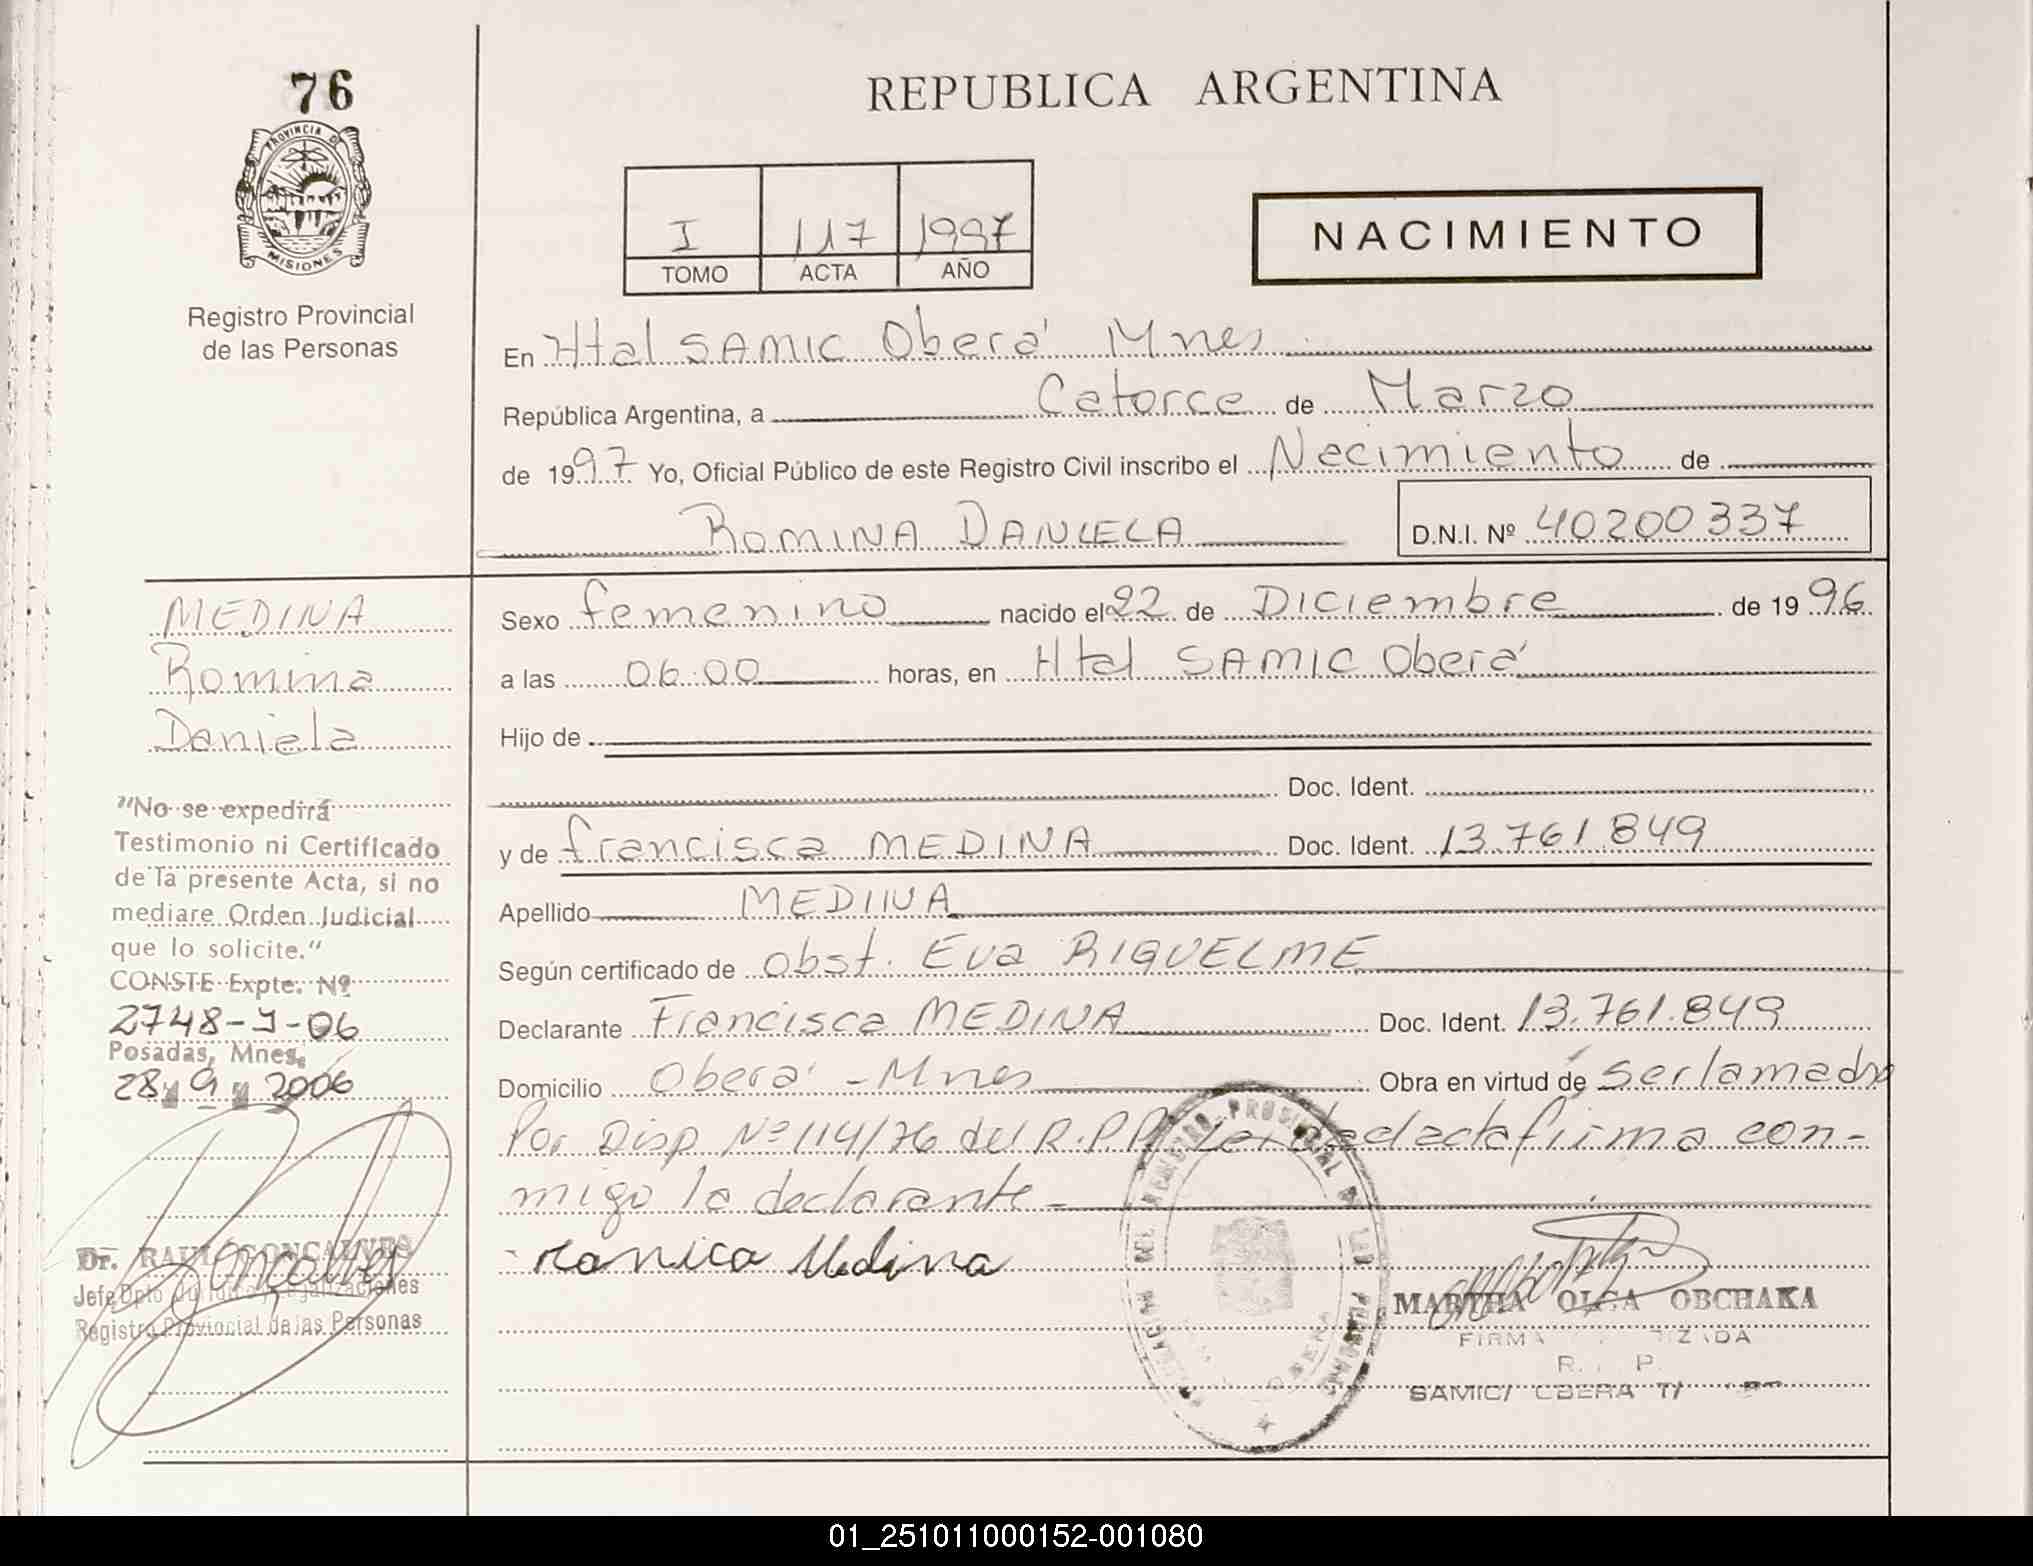 76
PROVINCIA DE
MISIONES
Registro Provincial
de las Personas
REPUBLICA ARGENTINA
I 117 1997
TOMO ACTA AÑO
NACIMIENTO
En Htal SAMIC Oberá Mnes
República Argentina, a Catorce de Marzo
de 1997 Yo, Oficial Público de este Registro Civil inscribo el Nacimiento de
ROMINA DANIELA D.N.I. Nº 40200337
MEDINA
Romina
Daniela
"No se expedirá
Testimonio ni Certificado
de la presente Acta, si no
mediare Orden Judicial
que lo solicite."
CONSTE Expte. Nº
2748-9-06
Posadas, Mnes,
28 9 2006
Dr. RAUL GONCALVES
Jefe Dpto
Registro Provincial de las Personas
Sexo femenino nacido el 22 de Diciembre de 1996
a las 06:00 horas, en Htal SAMIC Oberá
Hijo de
Doc. Ident.
y de francisca MEDINA Doc. Ident. 13.761.849
Apellido MEDINA
Según certificado de obst. Eva RIQUELME
Declarante Francisca MEDINA Doc. Ident. 13.761.849
Domicilio Oberá - Mnes Obra en virtud de ser la madre
Por Disp Nº 114/76 del R.P.P. Leida el acta firma con-
migo la declarante -
Medina
MARTHA OLGA OBCHAKA
FIRMA
R. P.
SAMIC/ OBERA
01_251011000152-001080